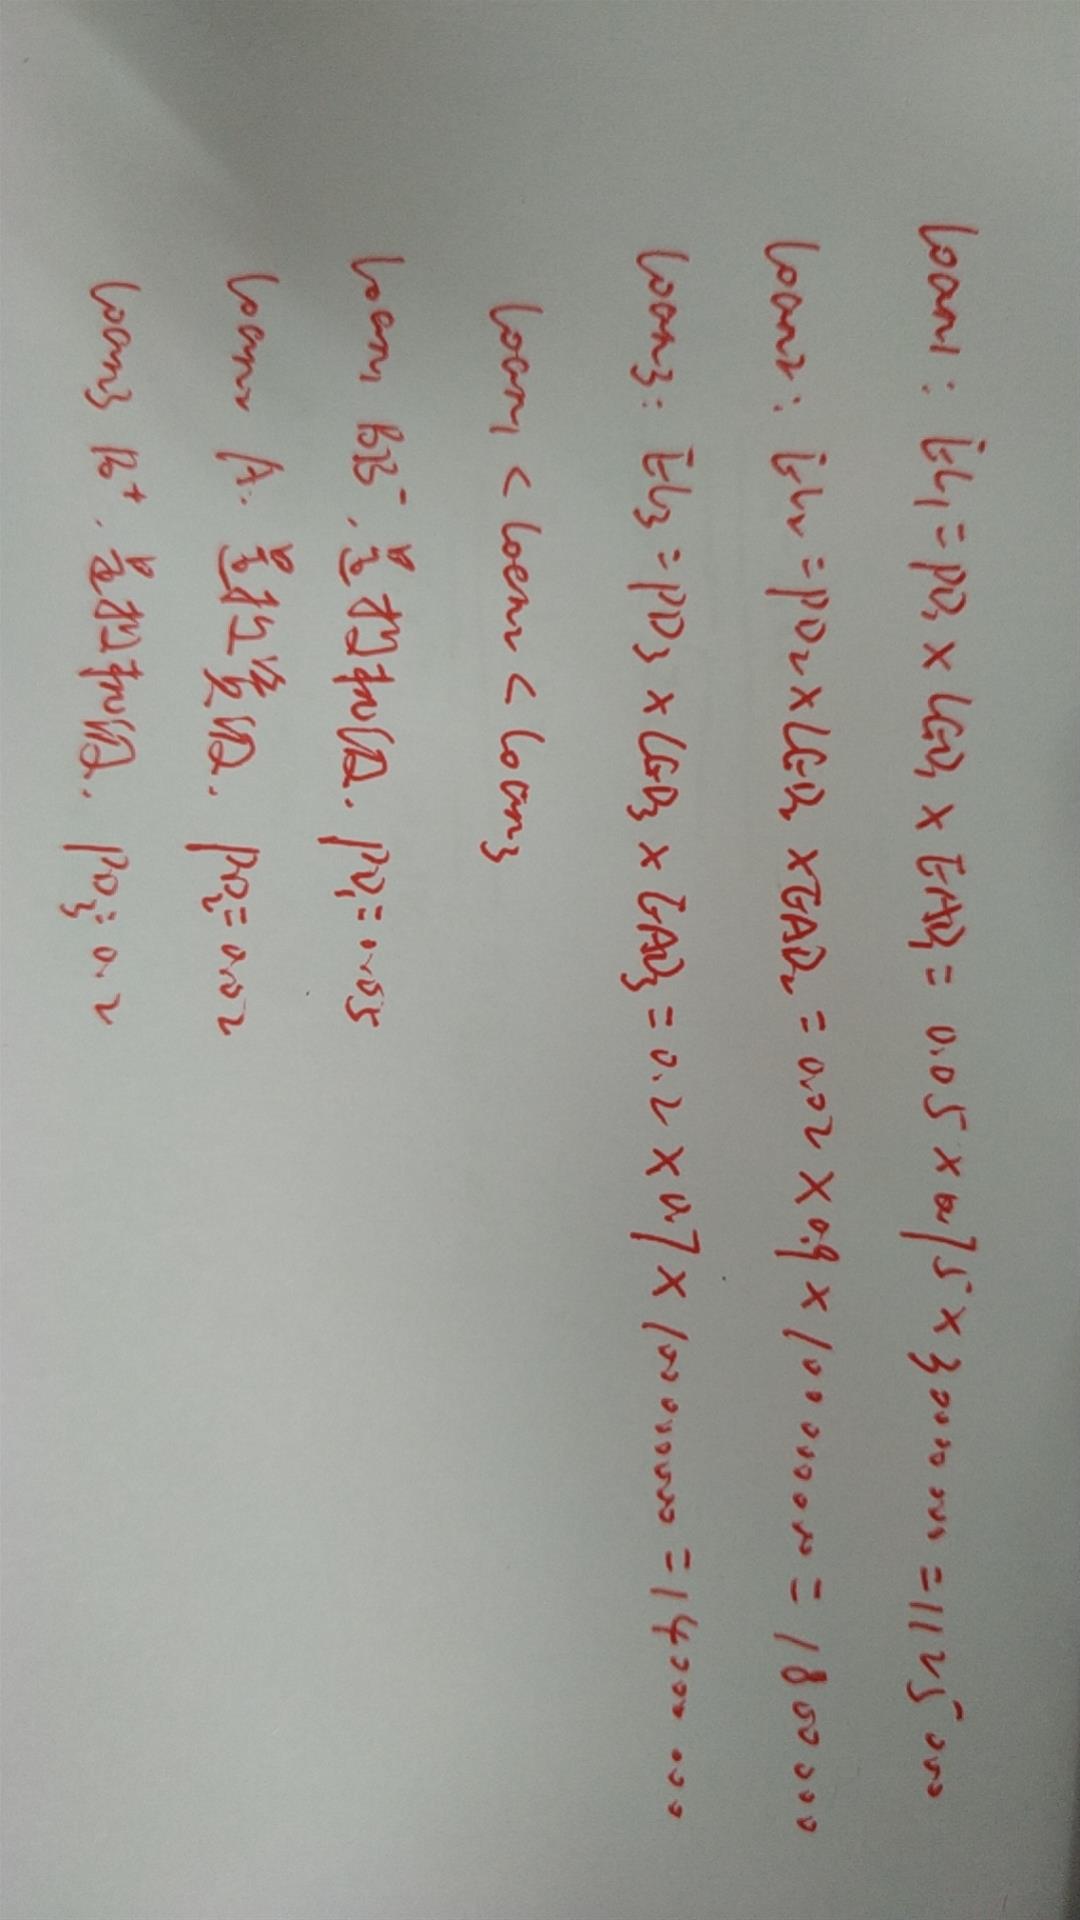 loan1: EL1 = PD1 × LGD1 × EAD1 = 0.05 × 0.75 × 30000000 = 1125000
loan2: EL2 = PD2 × LGD2 × EAD2 = 0.02 × 0.9 × 100000000 = 1800000
loan3: EL3 = PD3 × LGD3 × EAD3 = 0.2 × 0.7 × 100000000 = 14000000
loan1 < loan2 < loan3
loan1 BB-. 是投机级. PD1=0.05
loan2 A. 是投资级. PD2=0.02
loan3 B+. 是投机级. PD3=0.2